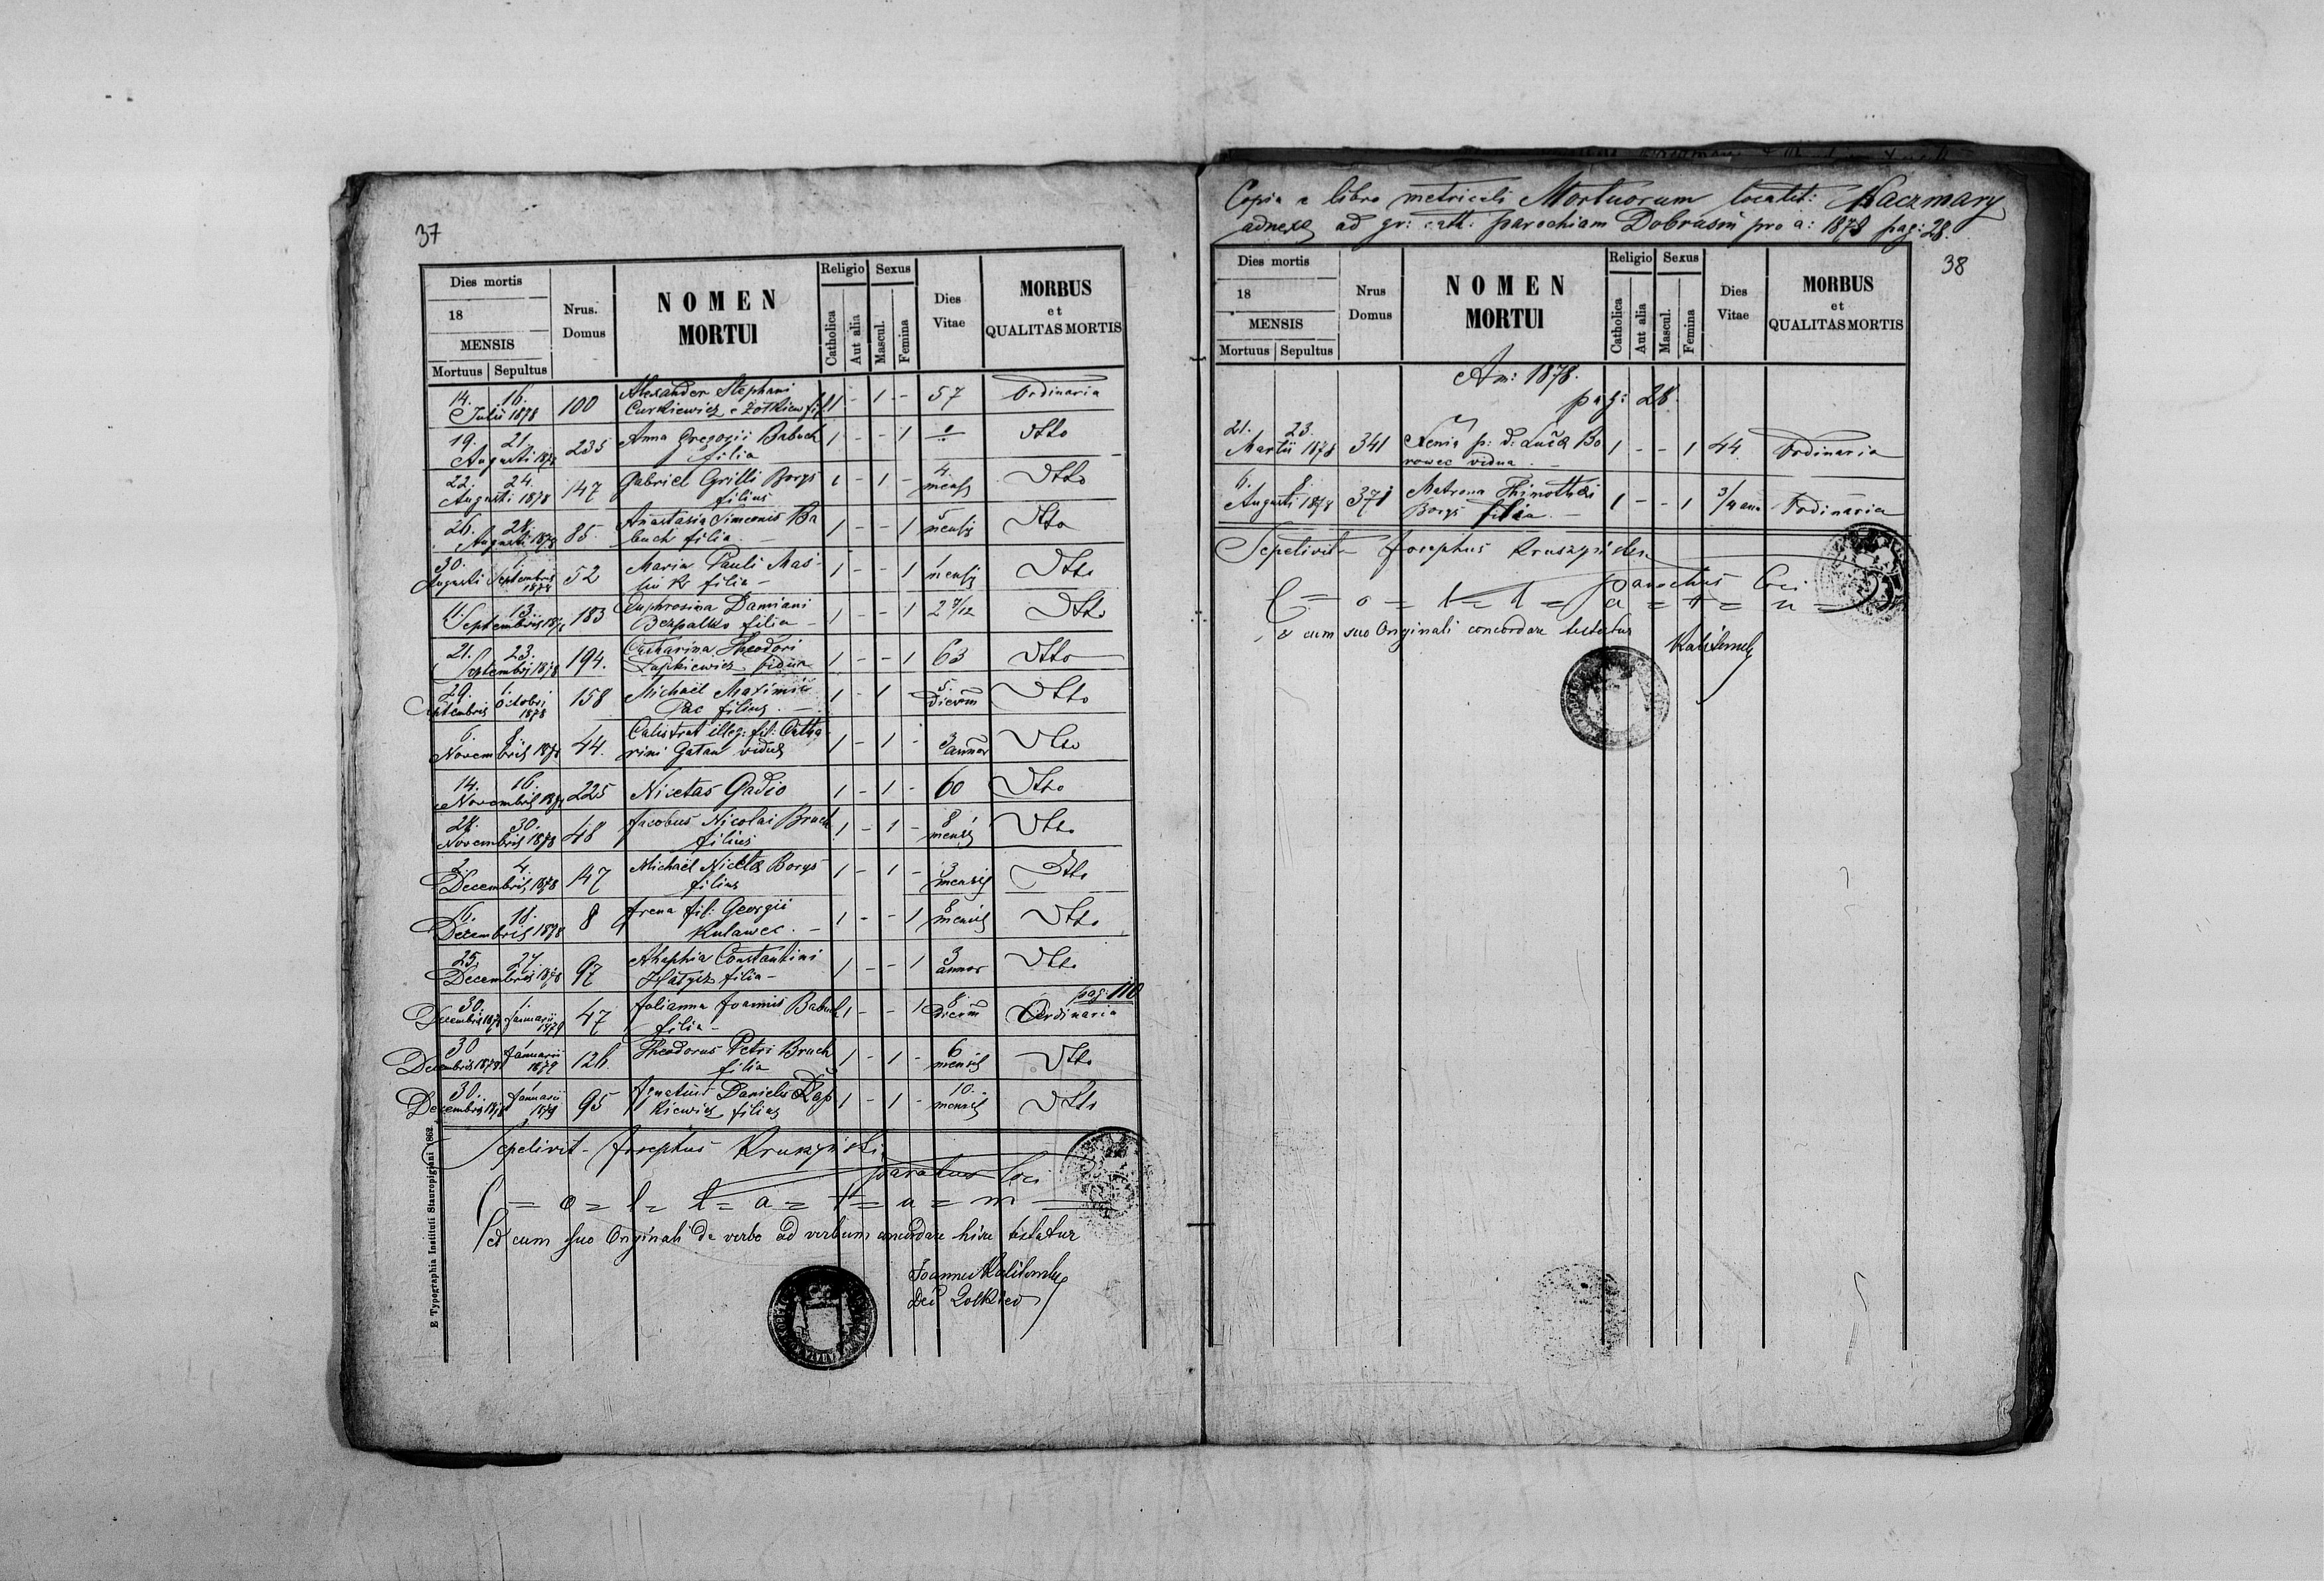 37
Dies mortis
18
MENSIS
Mortuus Sepultus
Nrus. Domus
NOMEN MORTUI
Religio
Catholica
Aut alia
Sexus
Mascul.
Femina
Dies Vitae
MORBUS et QUALITAS MORTIS
14. 16. Alexander Stephani
Julii 1878 100 Curkiewicz e Żołkiew fil. 1 - 1 - 57 Ordinaria
19. 21. Anna Gregorii Babuch
Augusti 1878 235 filia 1 - - 1 Dtto
22. 24. Gabriel Cyrilli Borys 4
Augusti 1878 147 filius 1 - 1 - mensis Dtto
26. 28. Anastasia Simeonis Ba 5
Augusti 1878 85. buch filia. 1 - - 1 mensis Dtto
30. 1. Maria Pauli Mas- 1
Augusti Septembris 1878 52 filia - 1 - - 1 mensis Dtto
11. 13. Euphrosina Damiani
Septembris 1878 183 Bezpalko filia - 1 - - 1 2 7/12 Dtto
21. 23. Catharina Theodori
Septembris 1878 194. Łapkiewicz vidua 1 - - 1 63 Dtto
29. 1. Michael Maximi 5.
Septembris Octobris 1878 158 Pac filius. 1 - 1 dierum Dtto
6. 8. Calistrat illeg: fil: Catha 3
Novembris 1878 44. rini Gatan vidua 1 - 1 - annor Dtto
14. 16.
Novembris 1878 225 Nicetas Gadio 1 - 1 - 60 Dtto
28. 30. Jacobus Nicolai Bruch 8
Novembris 1878 48 filius 1 - 1 - mensis Dtto
2. 4. Michael Nicetae Borys 3
Decembris 1878 147 filius 1 - 1 - mensis Dtto
16. 18. Irena fil: Georgii 8
Decembris 1878 8 Kulawec. - 1 - - 1 mensis Dtto
25. 27. Ahaphia Constantini 3
Decembris 1878 97 filia - 1 - - 1 annor Dtto
pag: 110
30. 1. Julianna Joannis Babuch 8.
Decembris 1878 Januarii 1879 47 filia - 1 - - 1 dierum Ordinaria
30 1 Theodorus Petri Bruch 6
Decembris 1878 Januarii 1879 126 filia 1 - 1 - mensis Dtto
30. 1 Ignatius Danielis Łap 10.
Decembris 1878 Januarii 1879 95 kiewicz filius 1 - 1 - mensis Dtto
Sepelivit Josephus Kruszyński
parochus loci
C = o = l = l = a = t = u = m
et cum suo Originali de verbo ad verbum concordare hisce testatur
Joannes
Dec Zolkiew
E Typographia Instituti Stauropigiani 1862
Copia e libro metricali Mortuorum localit: Kaczmary
adnexae ad gr: cath: parochiam Dobrosin pro a: 1878 pag: 28.
38
Dies mortis
18
MENSIS
Mortuus Sepultus
Nrus Domus
NOMEN MORTUI
Religio
Catholica
Aut alia
Sexus
Mascul.
Femina
Dies Vitae
MORBUS et QUALITAS MORTIS
An: 1878.
pag: 28
21. 23. Xenia p: d: Lucae Bo
Martii 1878 341 rowec vidua. 1 - - 1 44 Ordinaria
6. 8. Matrona Thimothei
Augusti 1878 371 Borys filia. 1 - - 1 3/4 ann Ordinaria
Sepelivit Josephus Kruszyński
parochus loci
C = o = l = l = a = t = u =
et cum suo Originali concordare testatur